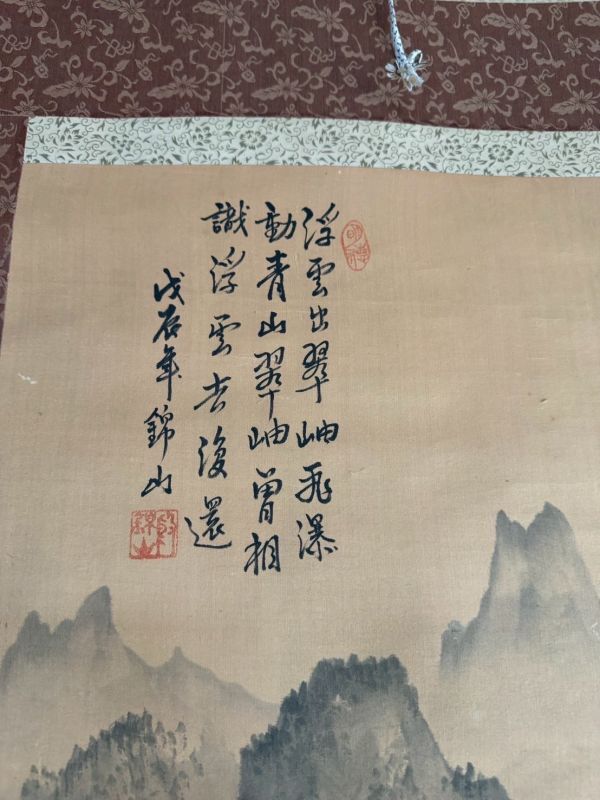 浮雲出翠岫飛瀑
動青山翠岫曽相
識浮雲去復還
戊辰年錦山